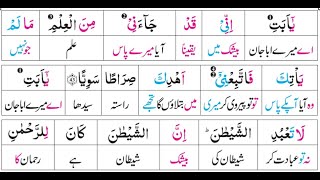 يٰۤاَبَتِ اِنِّيْ قَدْ جَآءَنِيْ مِنَ الْعِلْمِ مَا لَمْ
اے میرے ابا جان بیشک میں یقیناً آیا میرے پاس علم جو نہیں
يَاْتِكَ فَاتَّبِعْنِيْۤ اَهْدِكَ صِرَاطًا سَوِيًّا ﴿۴۳﴾ يٰۤاَبَتِ
وہ آیا آپکے پاس تو تو پیروی کر میری میں بتلاؤں گا تجھے راستہ سیدھا اے میرے ابا جان
لَا تَعْبُدِ الشَّيْطٰنَ ؕ اِنَّ الشَّيْطٰنَ كَانَ لِلرَّحْمٰنِ
نہ تو عبادت کر شیطان کی بیشک شیطان ہے رحمان کا